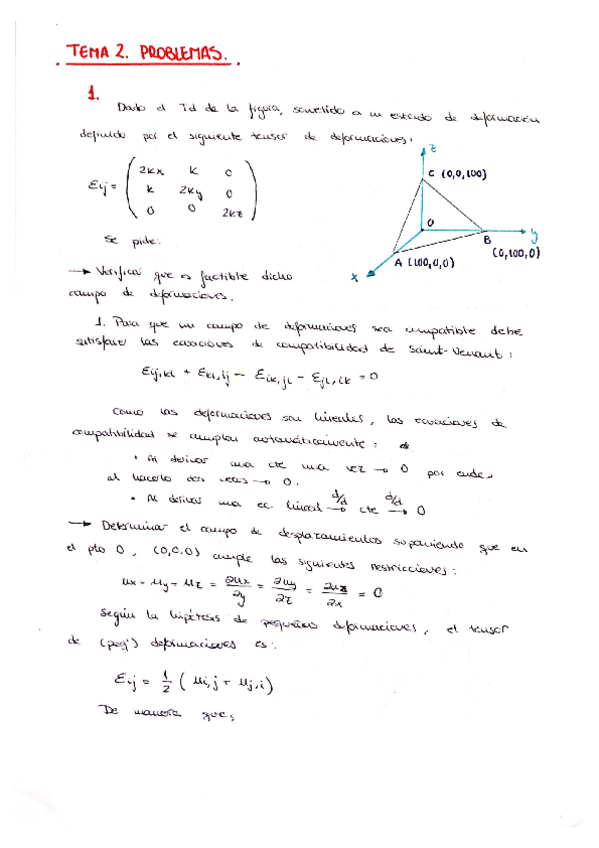 TEMA 2. PROBLEMAS.
1.
Dado el Td de la figura, sometido a un estado de deformación
definido por el siguiente tensor de deformaciones.
Eij = ( 2kx k 0
k 2ky 0
0 0 2kz )
z
C (0,0,100)
O
B
y
(0,100,0)
A (100,0,0)
x
Se pide:
→ Verificar que es factible dicho
campo de deformaciones.
1. Para que un campo de deformaciones sea compatible debe
satisfacer las ecuaciones de compatibilidad de Saint-Venant:
Eij,kl + Ekl,ij - Eik,jl - Ejl,ik = 0
Como las deformaciones son lineales, las ecuaciones de
compatibilidad se cumplen automáticamente:
• Al derivar una cte una vez → 0 por ende,
al hacerlo dos veces → 0.
• Al derivar una ec. lineal d/d → cte d/d → 0
→ Determinar el campo de desplazamientos suponiendo que en
el pto O, (0,0,0) cumple las siguientes restricciones:
ux = uy = uz = ∂ux/∂y = ∂uy/∂z = ∂uz/∂x = 0
Según la hipótesis de pequeñas deformaciones, el tensor
de (peq) deformaciones es:
Eij = 1/2 ( ui,j + uj,i )
De manera que,